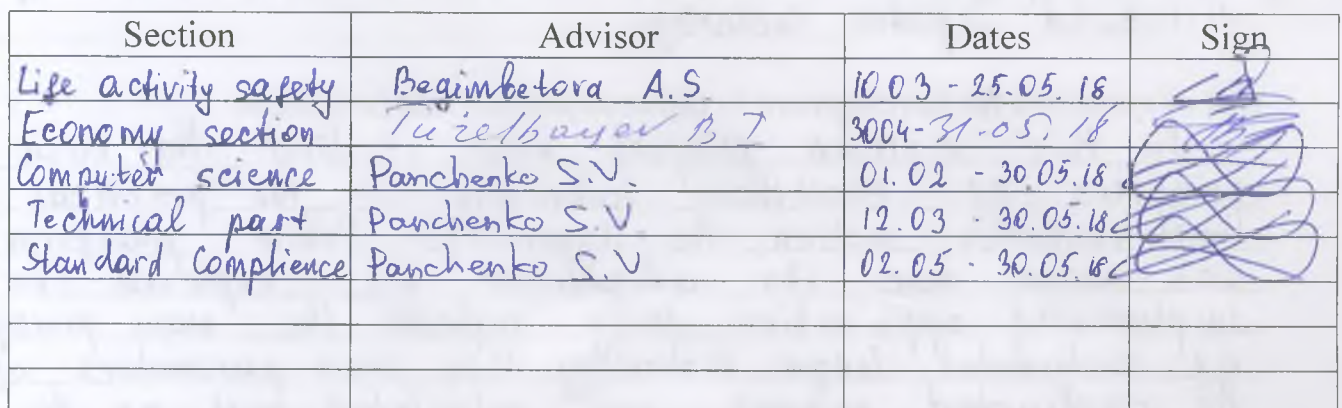 Section Advisor Dates Sign
Life activity safety Begimbetova A.S 10 03 - 25.05.18
Economy section B I 3004-31-05.18
Computer science Panchenko S.V. 01.02 - 30.05.18
Technical part Panchenko S.V. 12.03 - 30.05.18
Standard Complience Panchenko S.V 02.05 - 30.05.18